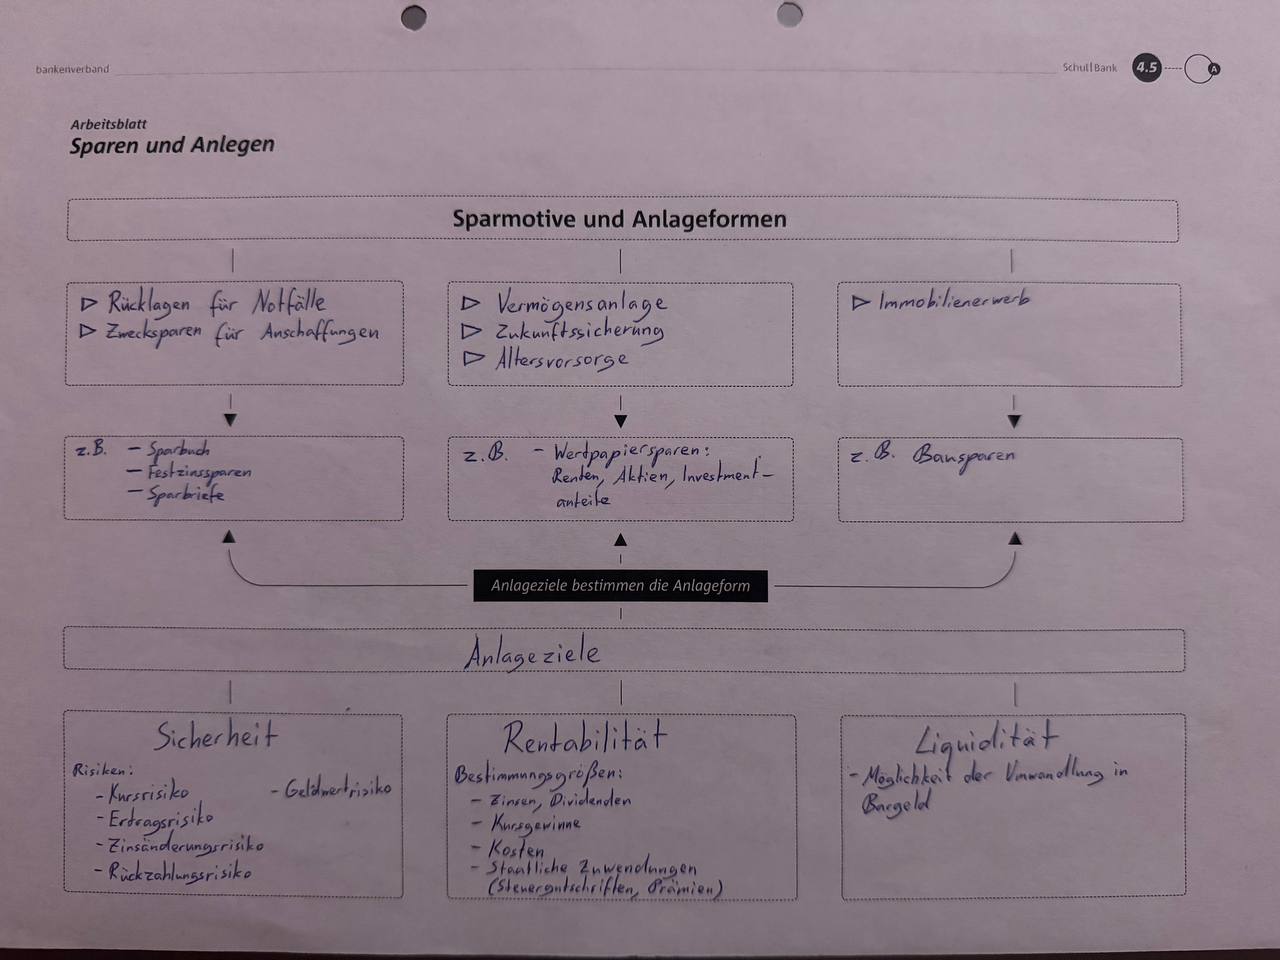 bankenverband
Schul|Bank 4.5 A
Arbeitsblatt
Sparen und Anlegen
Sparmotive und Anlageformen
▷ Rücklagen für Notfälle
▷ Zwecksparen für Anschaffungen
▷ Vermögensanlage
▷ Zukunftssicherung
▷ Altersvorsorge
▷ Immobilienerwerb
z.B. – Sparbuch
– Festzinssparen
– Sparbriefe
z.B. – Wertpapiersparen:
Renten, Aktien, Investment-
anteile
z.B. Bausparen
Anlageziele bestimmen die Anlageform
Anlageziele
Sicherheit
Risiken:
- Kursrisiko - Geldwertrisiko
- Ertragsrisiko
- Zinsänderungsrisiko
- Rückzahlungsrisiko
Rentabilität
Bestimmungsgrößen:
- Zinsen, Dividenden
- Kursgewinne
- Kosten
- Staatliche Zuwendungen
(Steuergutschriften, Prämien)
Liquidität
- Möglichkeit der Umwandlung in
Bargeld